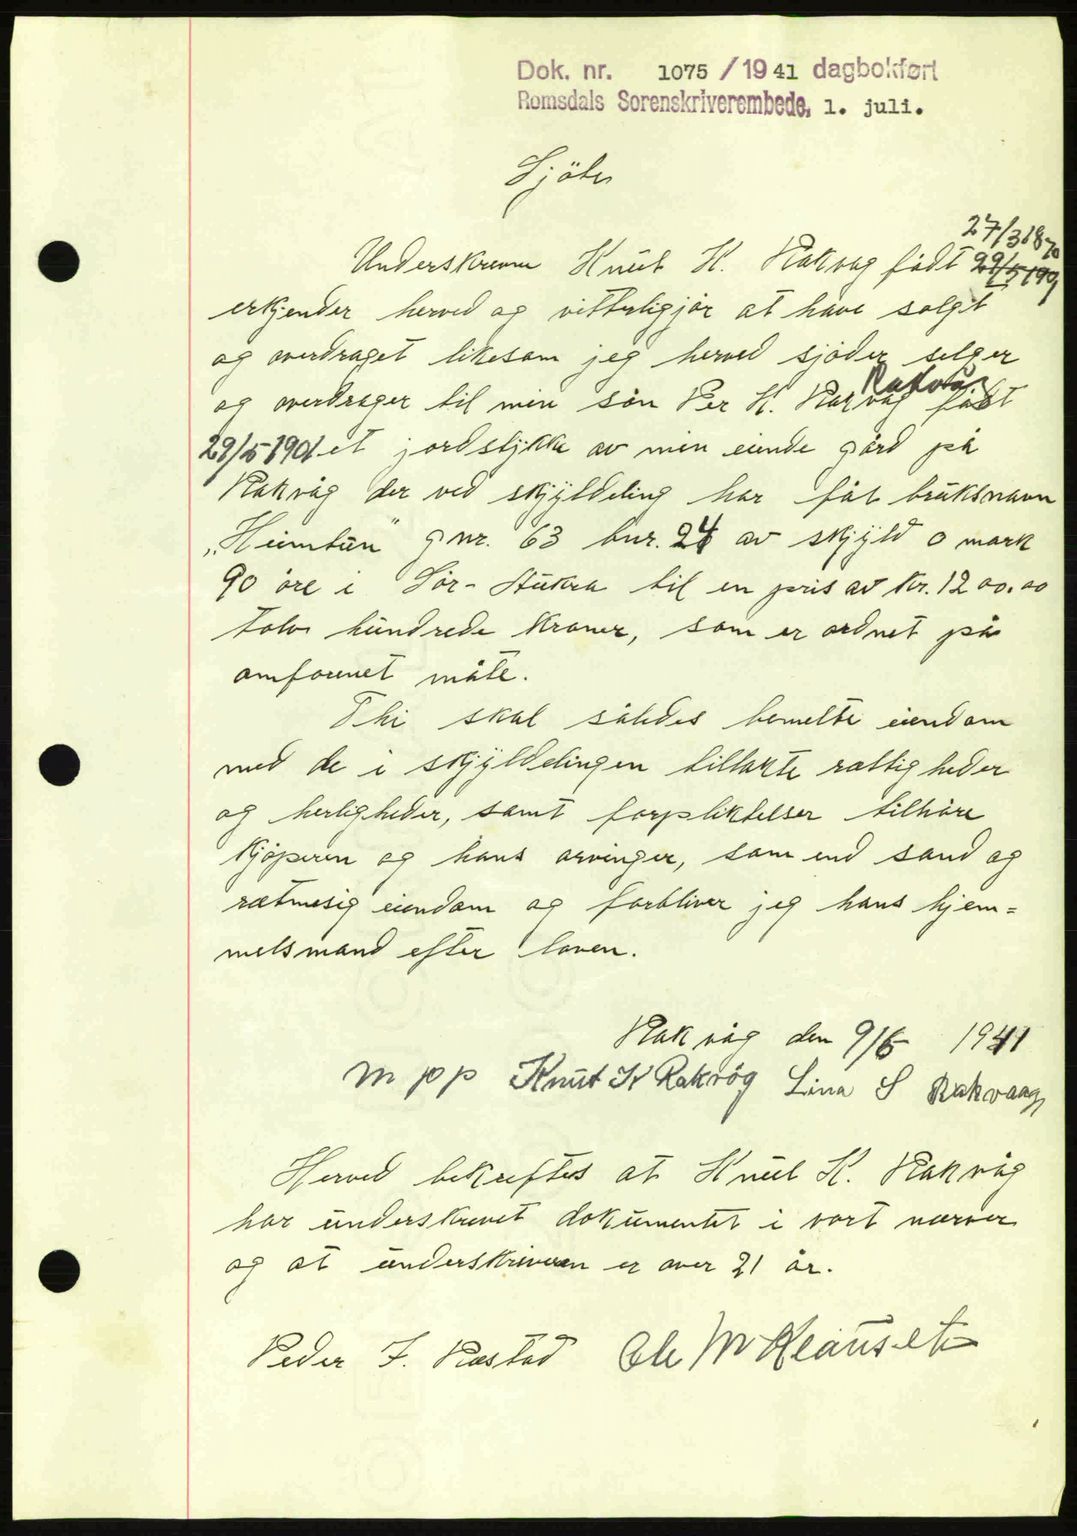 Dok. nr. 1075 / 19 41 dagbokført
Romsdals Sorenskriverembede, 1. juli.
Sjöte
27/3 1870
Underskrevne Knut K. Rakvag födt 29/5 190
erkjender herved og vitterligjör at have solgt
og overdraget likesom jeg herved sjöder selger
Rakvåg
og overdrager til min sön Per K. Rakvåg födt
29/5 1901 et jordstykke av min eiende gård på
Rakvåg der ved skjyldeling har fåt bruksnavn
„Heimtun“ gnr. 63 bnr. 24 av skjyld 0 mark
90 öre i Sör-Aukra til en pris av kr. 1200.00
tolv hundrede kroner, som er ordnet på
omforenet måte.
Thi skal således bemelte eiendom
med de i skjyldelingen tillakte rettigheder
og herligheder, samt forpliktelser tilhöre
kjöperen og hans arvinger, som end sand og
retmesig eiendom og forbliver jeg hans hjem=
melsmand efter loven.
Rakvåg den 9/6 1941
m p p Knut K Rakvåg Lina S Rakvaag
Herved bekreftes at Knut K. Rakvåg
har underskrevet dokumentet i vort nærver
og at underskriveren er over 21 år.
Peder J. Rastad Ole M Kleauset